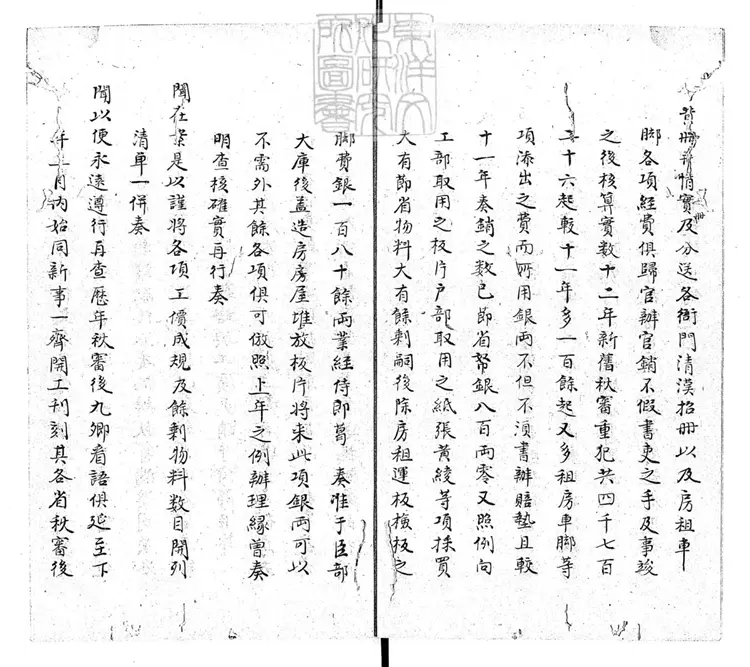 冊冊情實及分送各衙門清漢招冊以及房租車
脚各項經費俱歸官辦官銷不假書吏之手及事竣
之後核算實數十二年新舊秋審重犯共四千七百
二十六起較十一年多一百餘起又多租房車脚等
項添出之費而所用銀兩不但不須書辦賠墊且較
十一年奏銷之數已節省帑銀八百兩零又照例向
工部取用之板片戶部取用之紙張黃綾等項採買
大有節省物料大有餘剩嗣後除房租運板檢板之
脚費銀一百八十餘兩業經侍郎葛 奏准于臣部
大庫後蓋造房屋堆放板片將來此項銀兩可以
不需外其餘各項俱可倣照上年之例辦理緣曾奏
明查核確實再行奏
聞在案是以謹將各項工價成規及餘剩物料數目開列
清單一併奏
聞以便永遠遵行再查歷年秋審後九卿看語俱延至下
年二月內始同新事一齊開工刊刻其各省秋審後
東洋文化研究所圖書